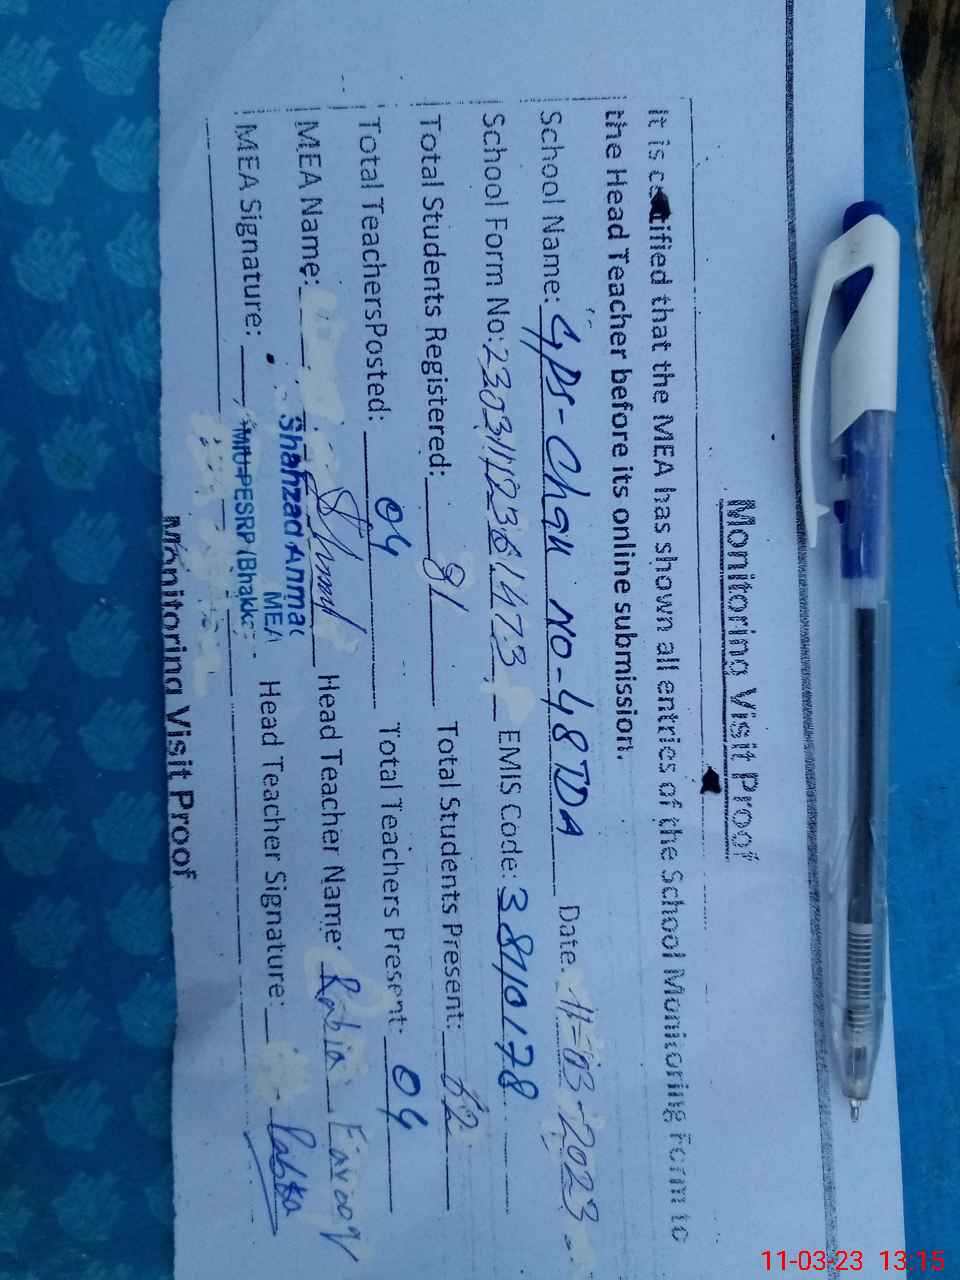 Monitoring Visit Proof
It is certified that the MEA has shown all entries of the School Monitoring Form to
the Head Teacher before its online submission.
School Name: GPS-Chak NO-48TDA Date: 11-03-2023
School Form No: 2303112361473 EMIS Code: 38110178
Total Students Registered: 91 Total Students Present: 62
Total TeachersPosted: 04 Total Teachers Present: 04
MEA Name: Head Teacher Name: Rabia Farooq
Shahzad Ahmad
MEA
MEA Signature: Head Teacher Signature: Rabia
MIU-PESRP (Bhakkar
Monitoring Visit Proof
11-03-23 13:15